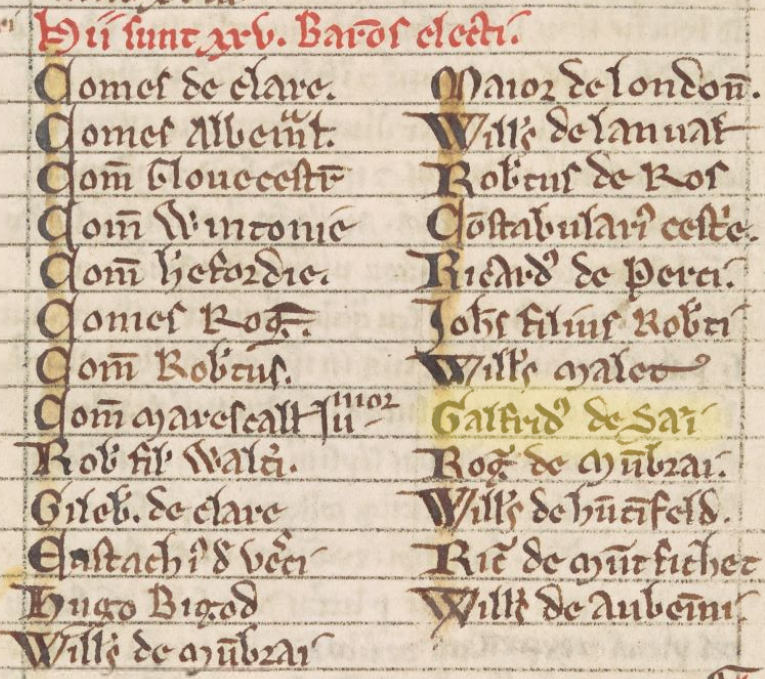 Hii sunt xxv. Baro͞s electi.
Comes de clare.
Comes Albem̅l.
Com̅ Gloucestr̅
Com̅ Wintonie
Com̅ hefordie.
Comes Rog̅.
Com̅ Rob̅tus.
Com̅ marescall iunior
Rob̅ fil̅ Walt̅i.
Gileb̅. de clare
Eustach' d̅ vec̅i
Hugo Bigod
Will̅s de mu̅brai
Maior de london̅.
Will̅s de lanual
Rob̅tus de Ros
Co̅stabulari' cest̅e.
Ricard' de Perci.
Joh̅s filius Rob̅ti
Will̅s malet
Galfrid' de Sai
Rog̅ de mu̅brai.
Will̅s de hu̅tifeld.
Ric̅ de mu̅tfichet
Will̅s de aubeini